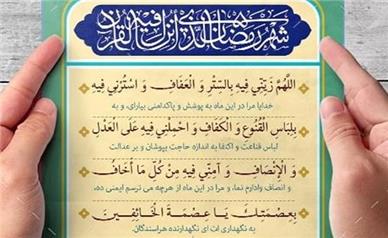 شهر رمضان الذي أنزل فيه القرآن
اللَّهُمَّ زَيِّنِّي فِيهِ بِالسِّتْرِ وَ الْعَفَافِ وَ اسْتُرْنِي فِيهِ
خدایا مرا در این ماه به پوشش و پاکدامنی بیارای، و به
بِلِبَاسِ الْقُنُوعِ وَ الْكَفَافِ وَ احْمِلْنِي فِيهِ عَلَى الْعَدْلِ
لباس قناعت و اکتفا به اندازه حاجت بپوشان و بر عدالت
وَ الْإِنْصَافِ وَ آمِنِّي فِيهِ مِنْ كُلِّ مَا أَخَافُ
و انصاف وادارم نما، و مرا در این ماه از هرچه می ترسم ایمنی ده،
بِعِصْمَتِكَ يَا عِصْمَةَ الْخَائِفِينَ
به نگهداری ات ای نگهدارنده هراسندگان.